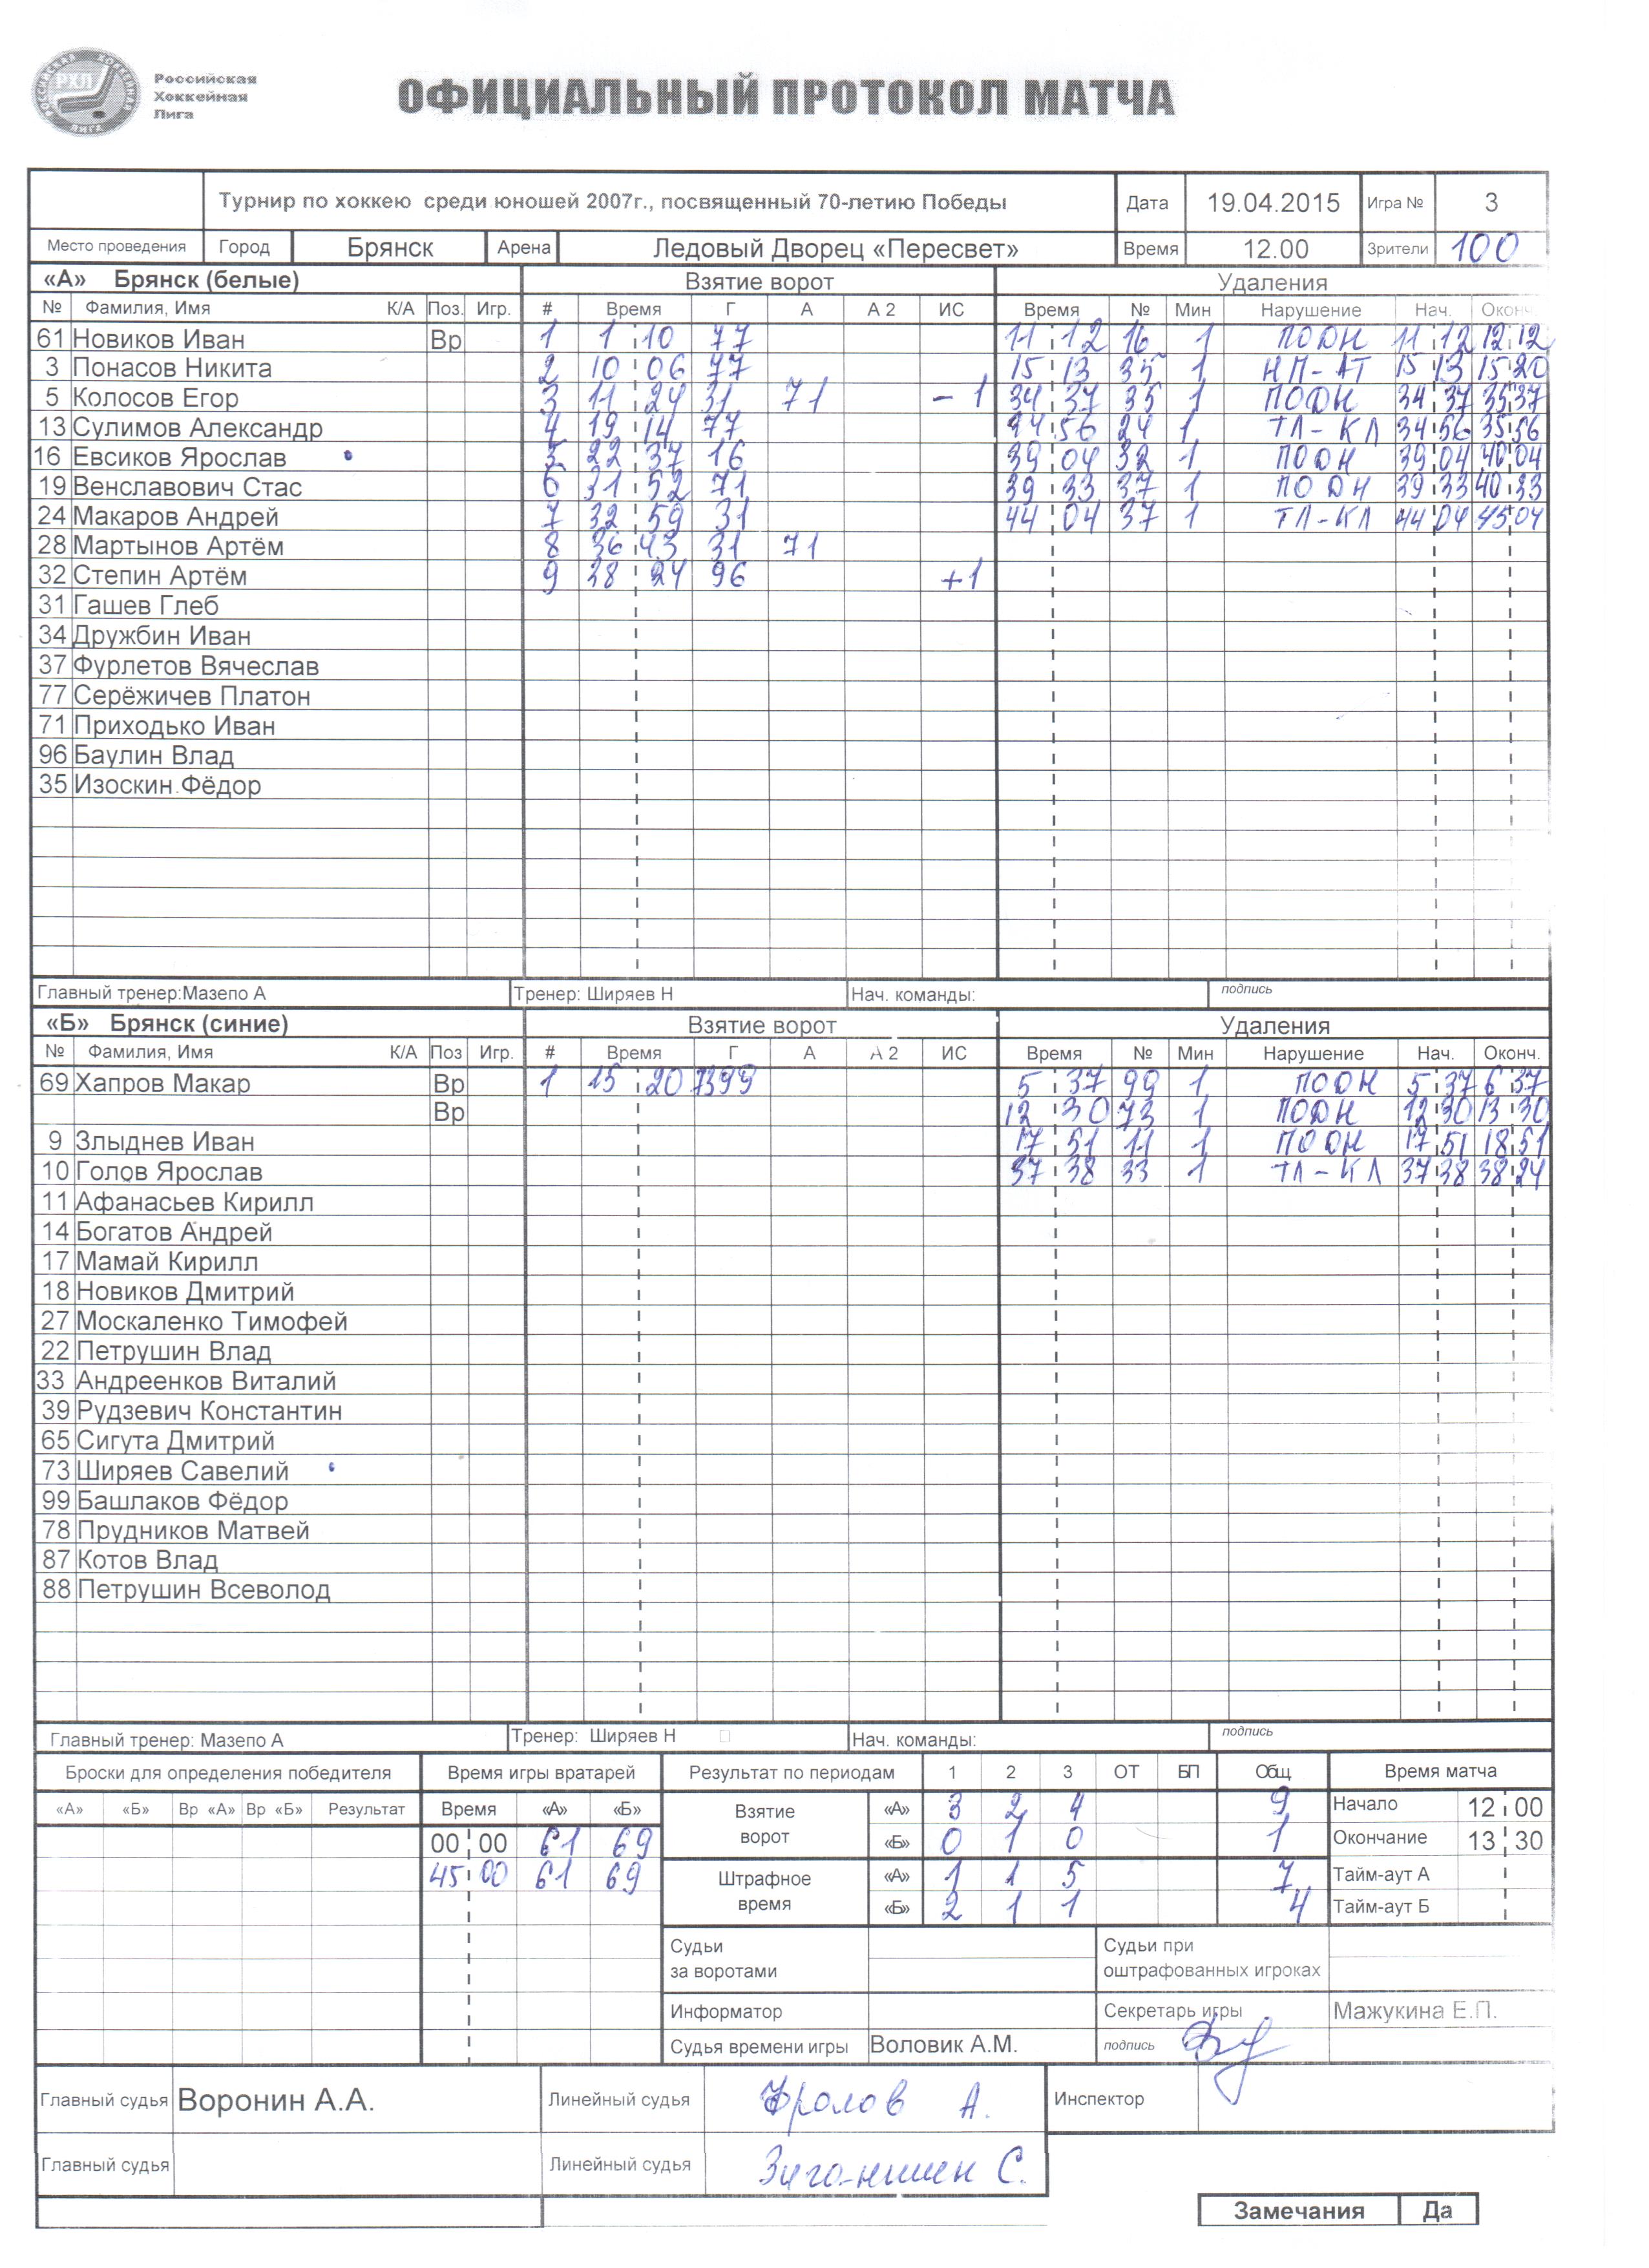 РОССИЙСКАЯ ХОККЕЙНАЯ ЛИГА РХЛ
Российская
Хоккейная
Лига
ОФИЦИАЛЬНЫЙ ПРОТОКОЛ МАТЧА
Турнир по хоккею среди юношей 2007г., посвященный 70-летию Победы Дата 19.04.2015 Игра № 3
Место проведения Город Брянск Арена Ледовый Дворец «Пересвет» Время 12.00 Зрители 100
«А» Брянск (белые) Взятие ворот Удаления
№ Фамилия, Имя К/А Поз. Игр. # Время Г А А 2 ИС Время № Мин Нарушение Нач. Оконч.
61 Новиков Иван Вр 1 1 10 77 11 12 16 1 ПОДН 11 12 12 12
3 Понасов Никита 2 10 06 77 15 13 35 1 НП-АТ 15 13 15 20
5 Колосов Егор 3 11 24 31 71 -1 34 37 35 1 ПОДН 34 37 35 37
13 Сулимов Александр 4 19 14 77 44 56 24 1 ТЛ-КЛ 34 56 35 56
16 Евсиков Ярослав 5 22 37 16 39 04 32 1 ПОДН 39 04 40 04
19 Венславович Стас 6 31 52 71 39 33 37 1 ПОДН 39 33 40 33
24 Макаров Андрей 7 32 59 31 44 04 37 1 ТЛ-КЛ 44 04 45 04
28 Мартынов Артём 8 36 43 31 71
32 Степин Артём 9 38 24 96 +1
31 Гашев Глеб
34 Дружбин Иван
37 Фурлетов Вячеслав
77 Серёжичев Платон
71 Приходько Иван
96 Баулин Влад
35 Изоскин Фёдор
Главный тренер:Мазепо А Тренер: Ширяев Н Нач. команды: подпись
«Б» Брянск (синие) Взятие ворот Удаления
№ Фамилия, Имя К/А Поз Игр. # Время Г А А 2 ИС Время № Мин Нарушение Нач. Оконч.
69 Хапров Макар Вр 1 15 20 99 5 37 99 1 ПОДН 5 37 6 37
Вр 12 30 73 1 ПОДН 12 30 13 30
9 Злыднев Иван 17 51 11 1 ПОДН 17 51 18 51
10 Голов Ярослав 37 38 33 1 ТЛ-КЛ 37 38 38 24
11 Афанасьев Кирилл
14 Богатов Андрей
17 Мамай Кирилл
18 Новиков Дмитрий
27 Москаленко Тимофей
22 Петрушин Влад
33 Андреенков Виталий
39 Рудзевич Константин
65 Сигута Дмитрий
73 Ширяев Савелий
99 Башлаков Фёдор
78 Прудников Матвей
87 Котов Влад
88 Петрушин Всеволод
Главный тренер: Мазепо А Тренер: Ширяев Н Нач. команды: подпись
Броски для определения победителя Время игры вратарей Результат по периодам 1 2 3 ОТ БП Общ Время матча
«А» «Б» Вр «А» Вр «Б» Результат Время «А» «Б» Взятие ворот «А» 3 2 4 9 Начало 12 00
00 00 61 69 «Б» 0 1 0 1 Окончание 13 30
45 00 61 69 Штрафное время «А» 1 1 5 7 Тайм-аут А
«Б» 2 1 1 4 Тайм-аут Б
Судьи за воротами Судьи при оштрафованных игроках
Информатор Секретарь игры Мажукина Е.П.
Судья времени игры Воловик А.М. подпись
Главный судья Воронин А.А. Линейный судья Фролов А. Инспектор
Главный судья Линейный судья Зиганшин С.
Замечания Да